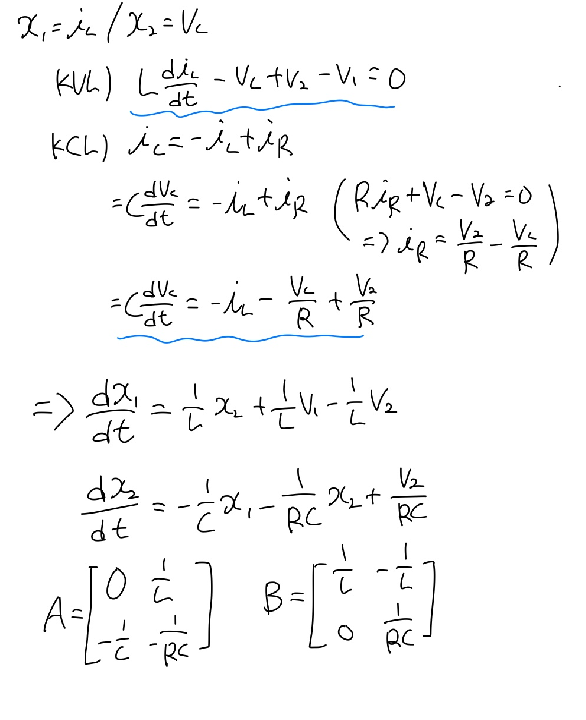 x₁ = i_L / x₂ = V_c
KVL) L di_L/dt - V_c + V₂ - V₁ = 0
KCL) i_c = -i_L + i_R
= C dV_c/dt = -i_L + i_R ( R i_R + V_c - V₂ = 0
=> i_R = V₂/R - V_c/R )
= C dV_c/dt = -i_L - V_c/R + V₂/R
=> dx₁/dt = 1/L x₂ + 1/L V₁ - 1/L V₂
dx₂/dt = -1/C x₁ - 1/RC x₂ + V₂/RC
A = [ 0 1/L ; -1/C -1/RC ] B = [ 1/L -1/L ; 0 1/RC ]